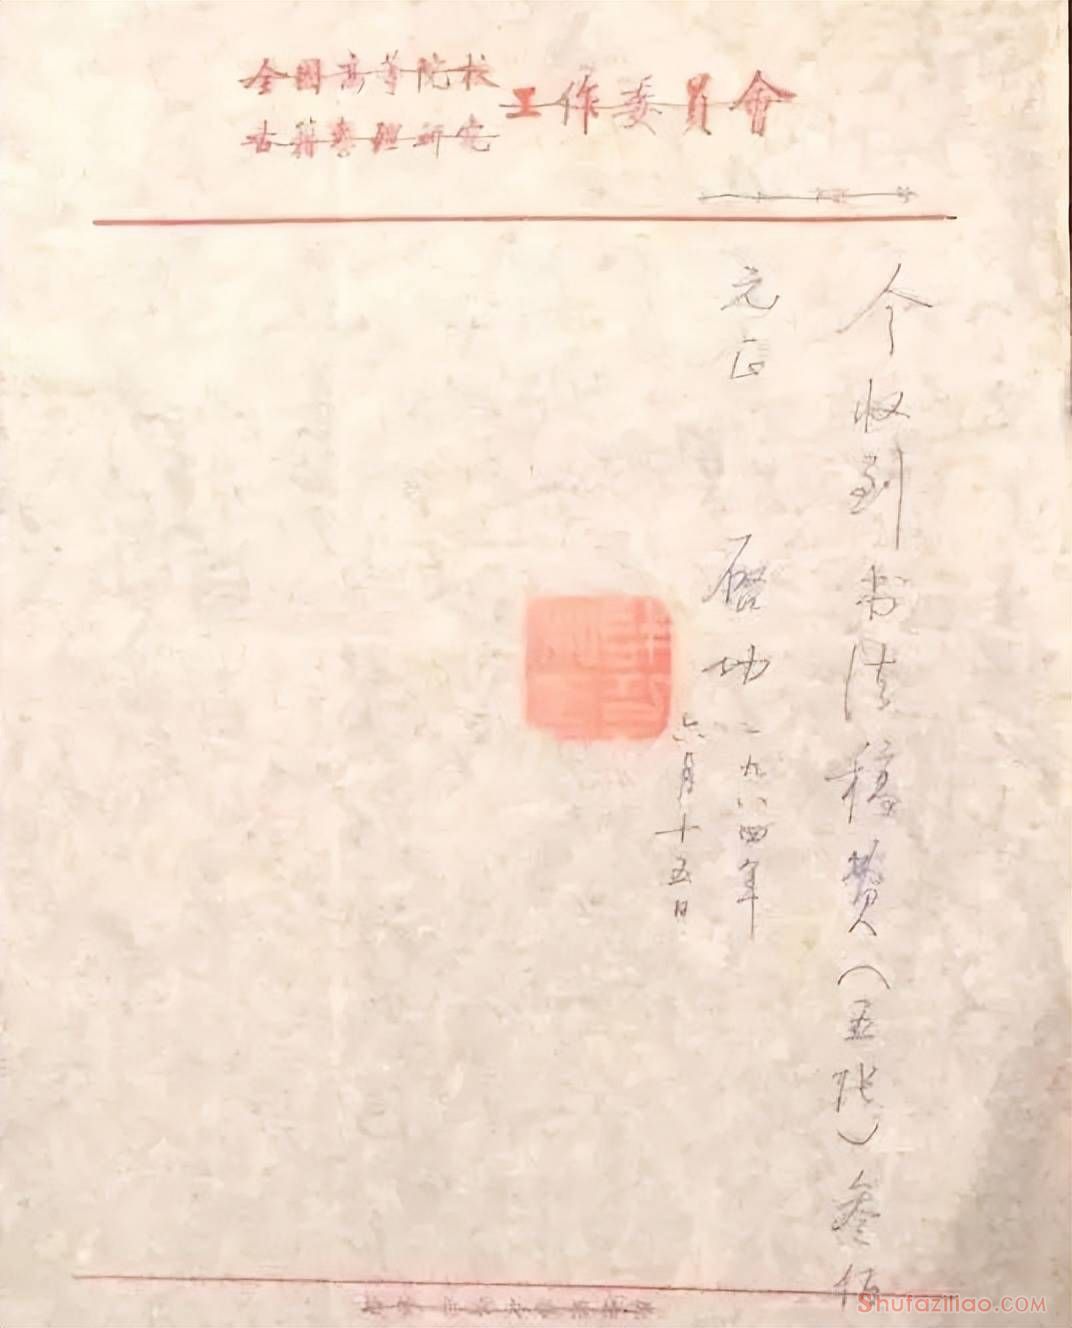 全國高等院校
古籍整理研究
工作委員會
今收到书法稿費（五张）叁佰
元正
启功 一九八四年
六月十五日
Shufaziliao.com